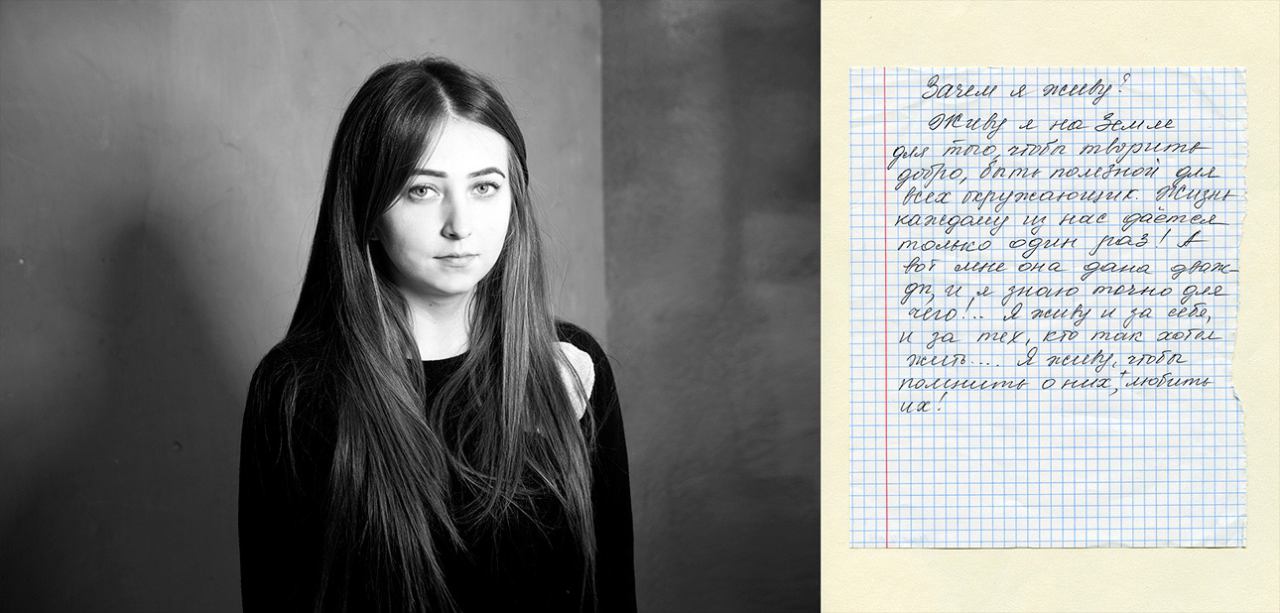 Зачем я живу?
Живу я на Земле
для того, чтобы творить
добро, быть полезной для
всех окружающих. Жизнь
каждому из нас даётся
только один раз! А
вот мне она дана дваж-
ды, и я знаю точно для
чего!.. Я живу и за себя,
и за тех, кто так хотел
жить.... Я живу, чтобы
помнить о них, любить
их!